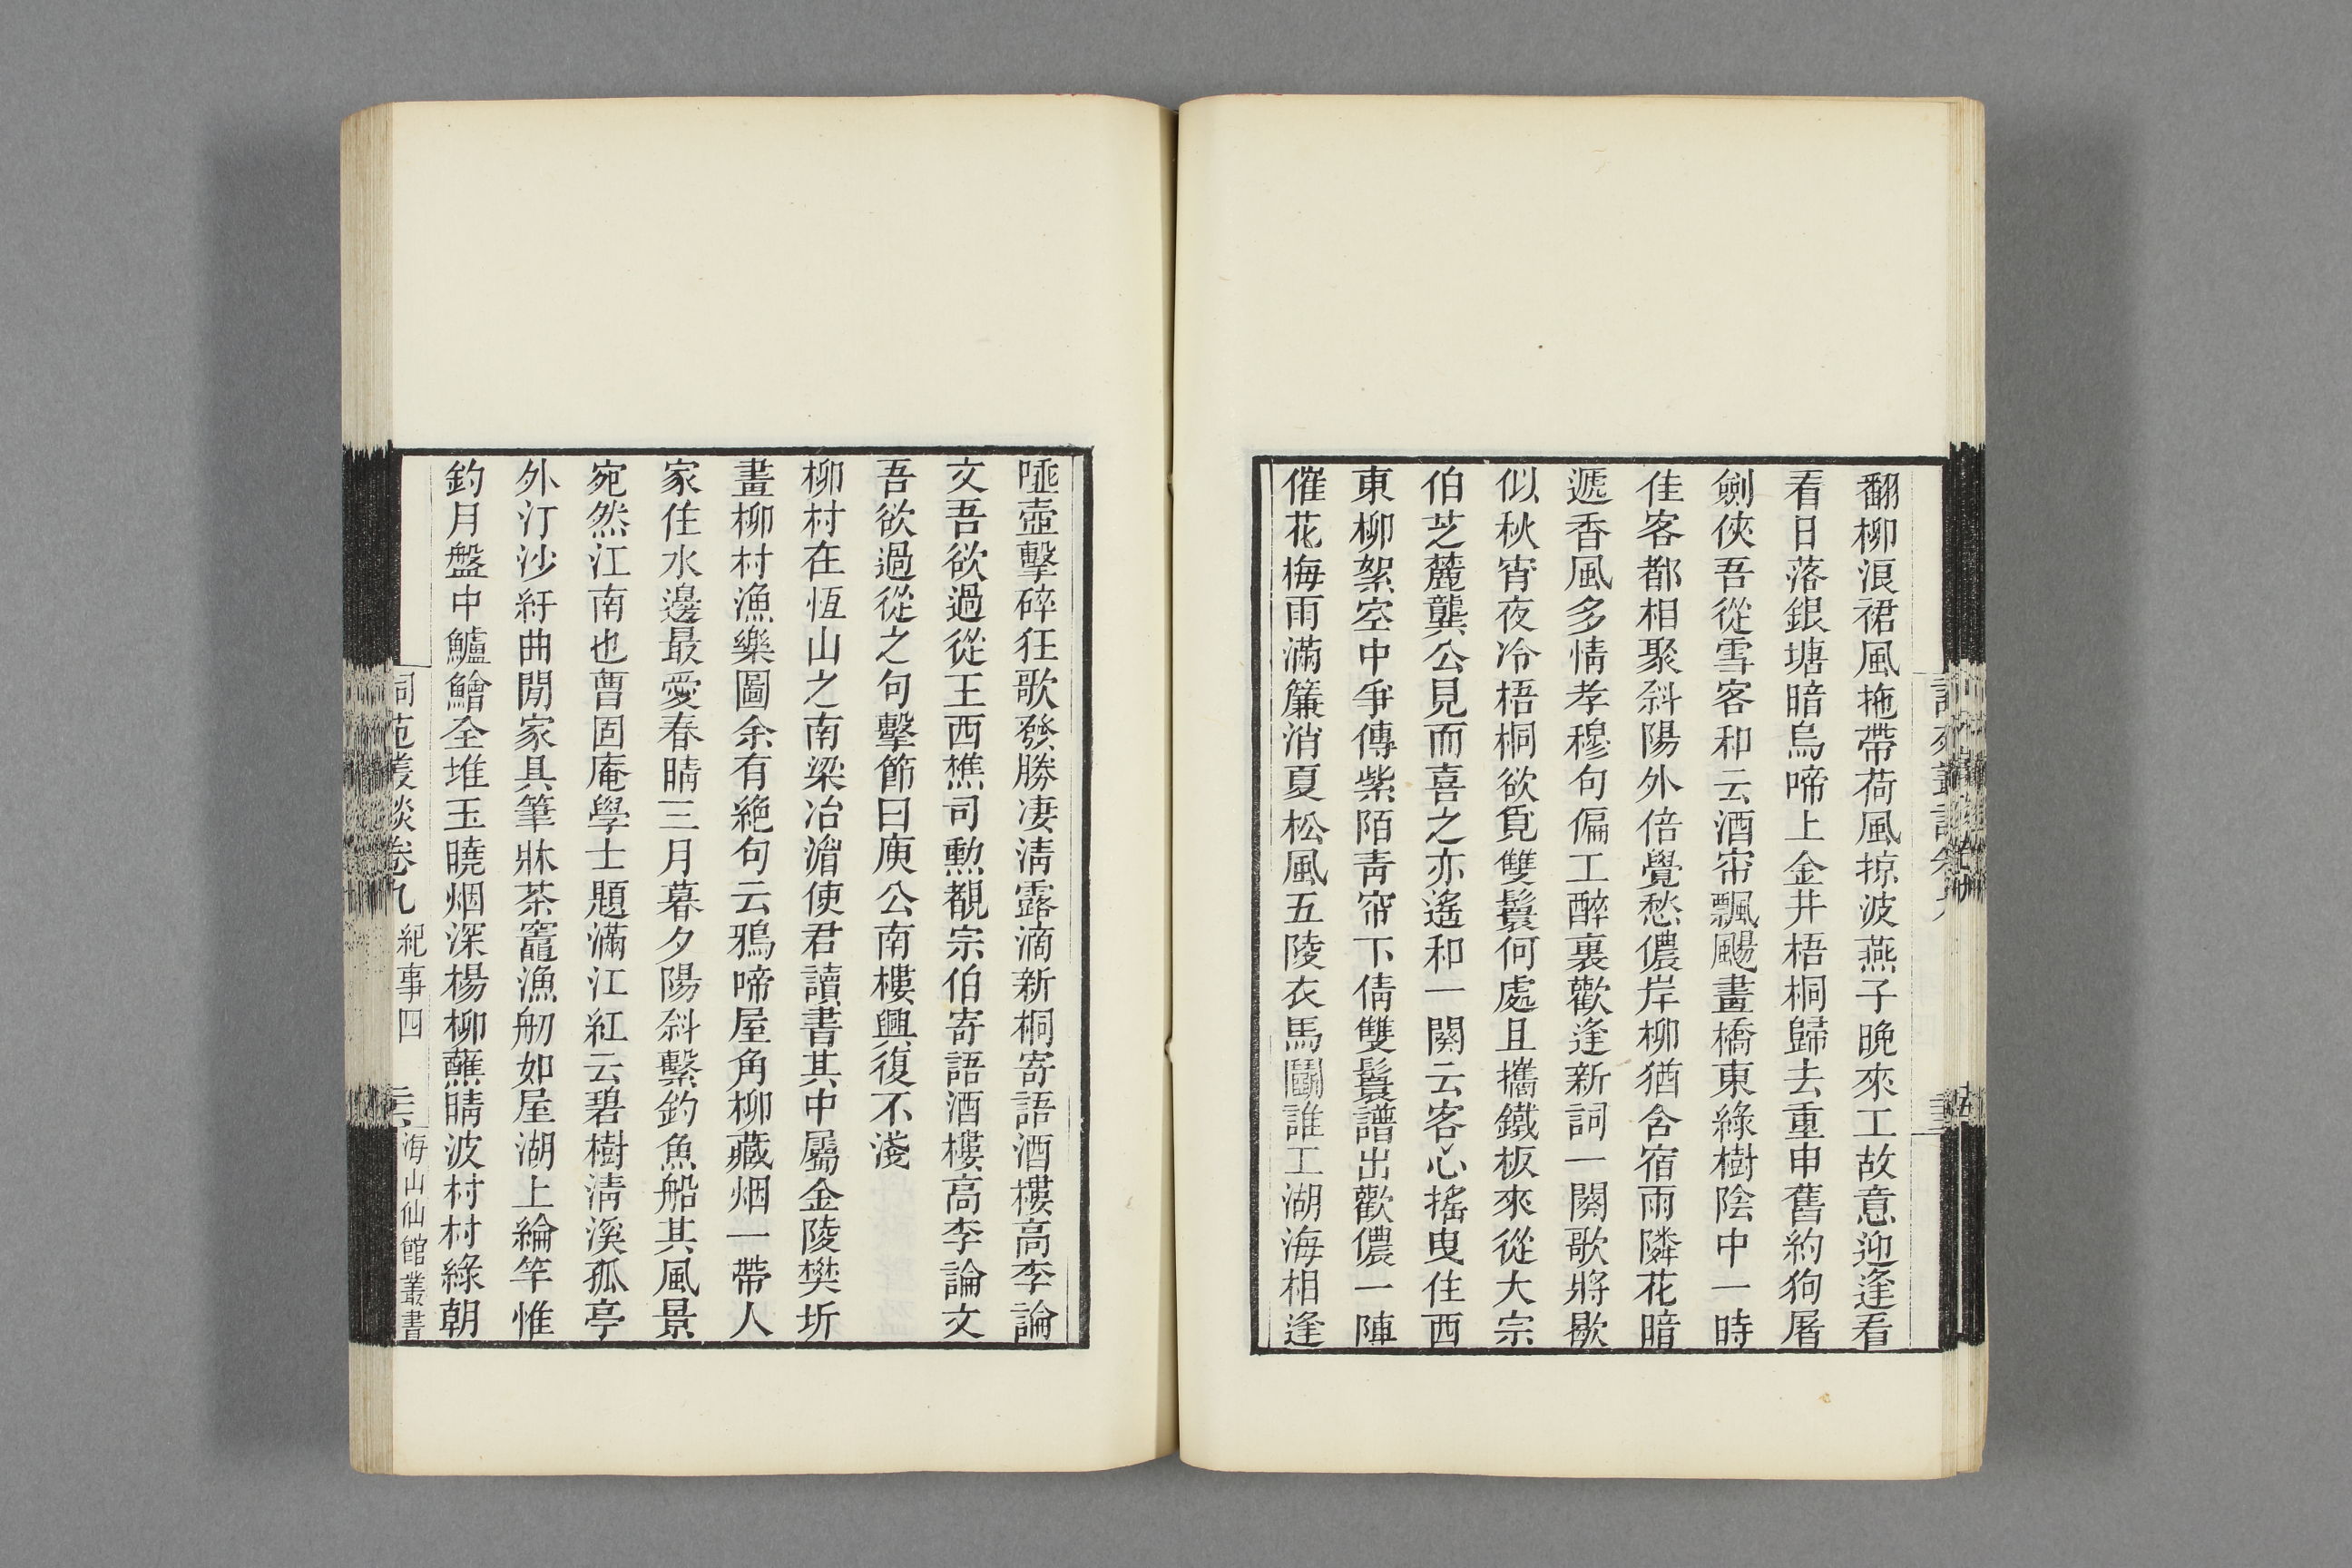 翻柳浪裙風拖帶荷風掠波燕子晚來工故意迎逢看
看日落銀塘暗烏啼上金井梧桐歸去重申舊約狗屠
劍俠吾從雪客和云酒帘飄颺畫橋東綠樹陰中一時
佳客都相聚斜陽外倍覺愁儂岸柳猶含宿雨隣花暗
遞香風多情孝穆句偏工醉裏歡逢新詞一闋歌將歇
似秋宵夜冷梧桐欲覓雙鬟何處且攜鐵板來從大宗
伯芝麓龔公見而喜之亦遙和一闋云客心搖曳住西
東柳絮空中爭傳紫陌青帘下倩雙鬟譜出歡儂一陣
催花梅雨滿簾消夏松風五陵衣馬鬭誰工湖海相逢
唾壺擊碎狂歌發勝凄清露滴新桐寄語酒樓高李論
文吾欲過從王西樵司勲覩宗伯寄語酒樓高李論文
吾欲過從之句擊節曰庾公南樓興復不淺
柳村在恆山之南梁冶湄使君讀書其中屬金陵樊圻
畫柳村漁樂圖余有絶句云鴉啼屋角柳藏烟一帶人
家住水邊最愛春晴三月暮夕陽斜繫釣魚船其風景
宛然江南也曹固庵學士題滿江紅云碧樹清溪孤亭
外汀沙紆曲閒家具筆牀茶竈漁舠如屋湖上綸竿惟
釣月盤中鱸鱠全堆玉曉烟深楊柳蘸晴波村村綠朝
詞苑叢談卷九 紀事四 海山仙館叢書